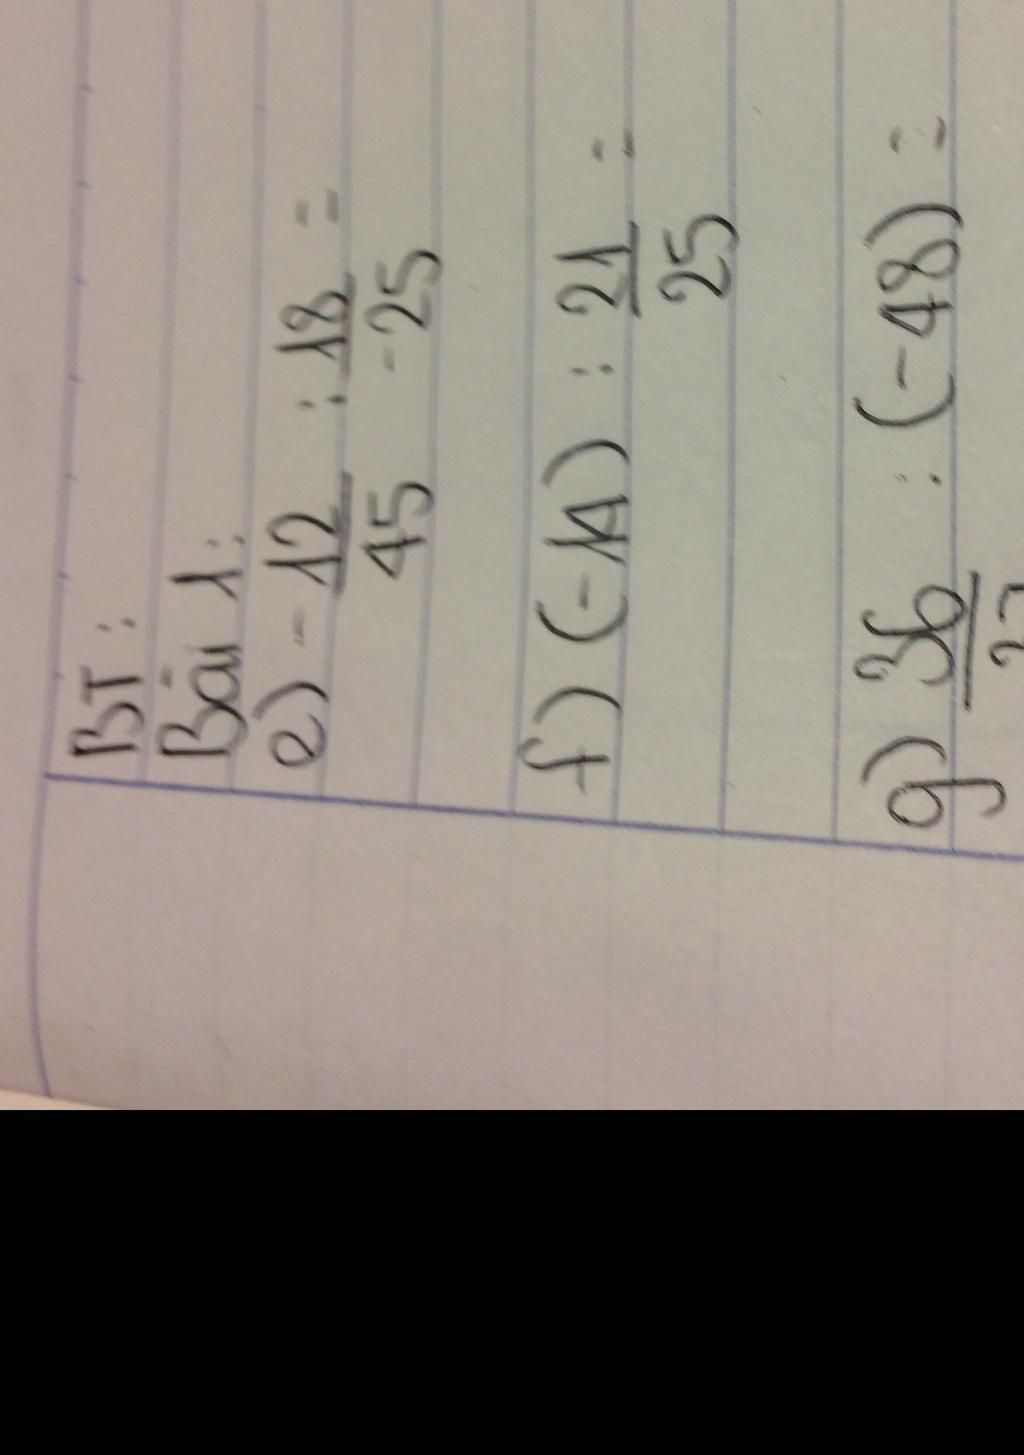 BT:
Bài 1:
e) - 12/45 : 18/-25 =
f) (-14) : 21/25 =
g) 36/ : (-48) =